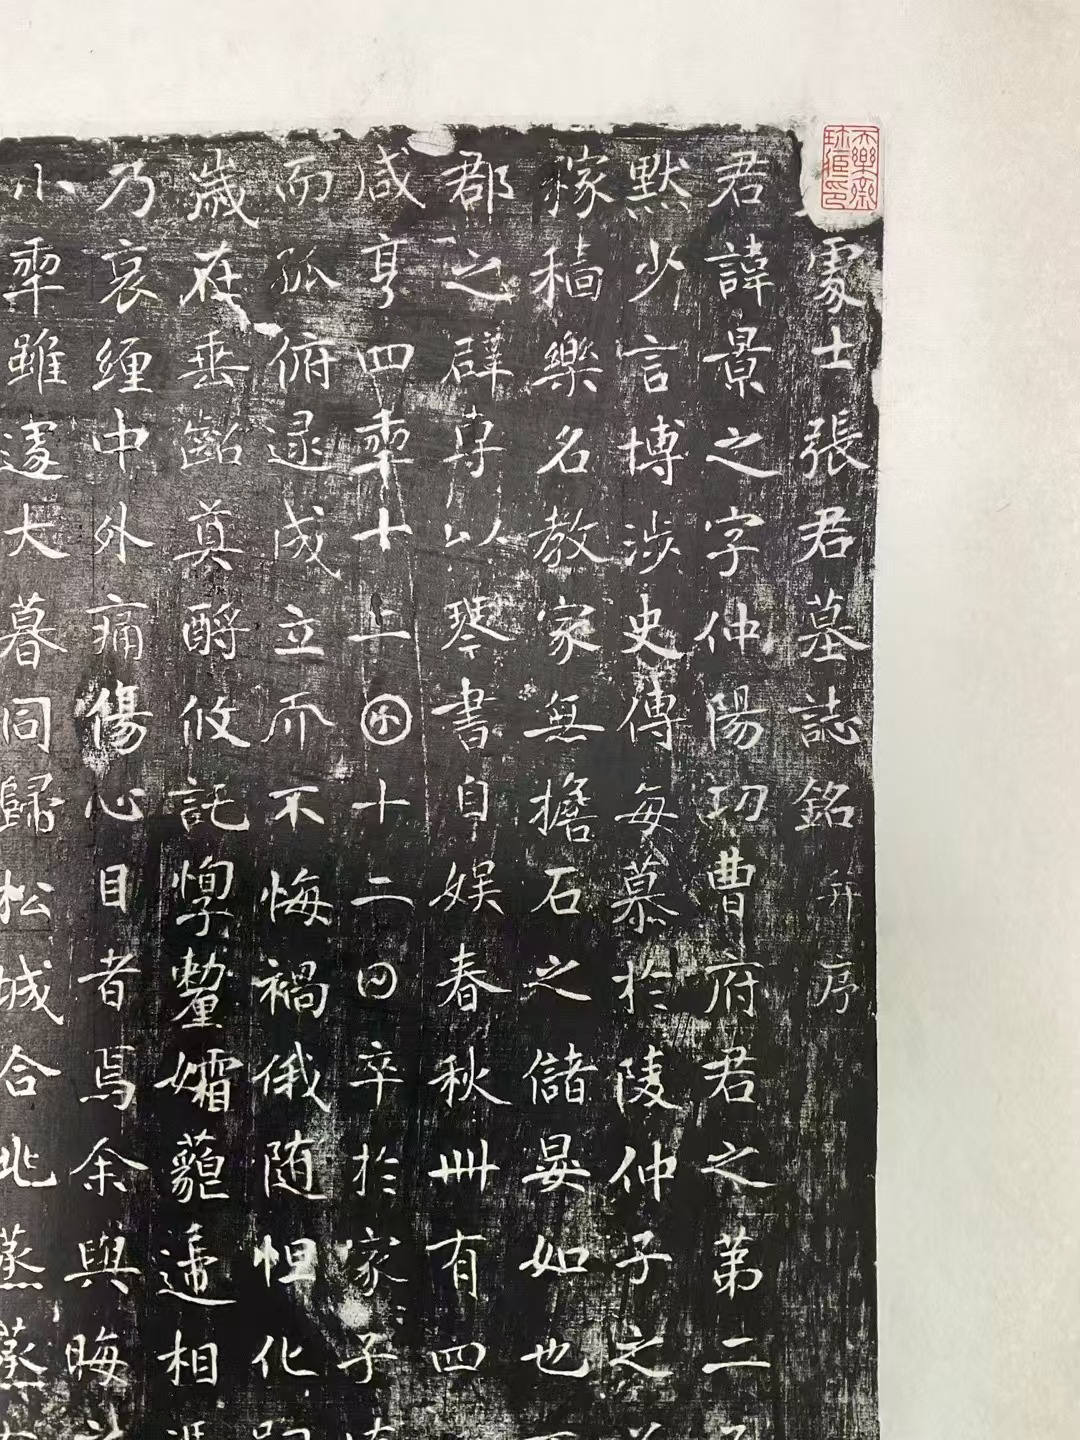 處士張君墓誌銘并序
君諱景之字仲陽功曹府君之第二子
默少言博涉史傳每慕於陵仲子之
稼穡樂名教家無擔石之儲晏如也
郡之辟尋以琴書自娛春秋卌有四
咸亨四年十二月十二日卒於家子
而孤俯逮成立而不悔禍俄随怛化
歲在垂齠奠酹攸託惸嫠孀藐遞相
乃哀缠中外痛傷心目者焉余與晦
小年雖遽大暮同歸松城合兆蒸蒸